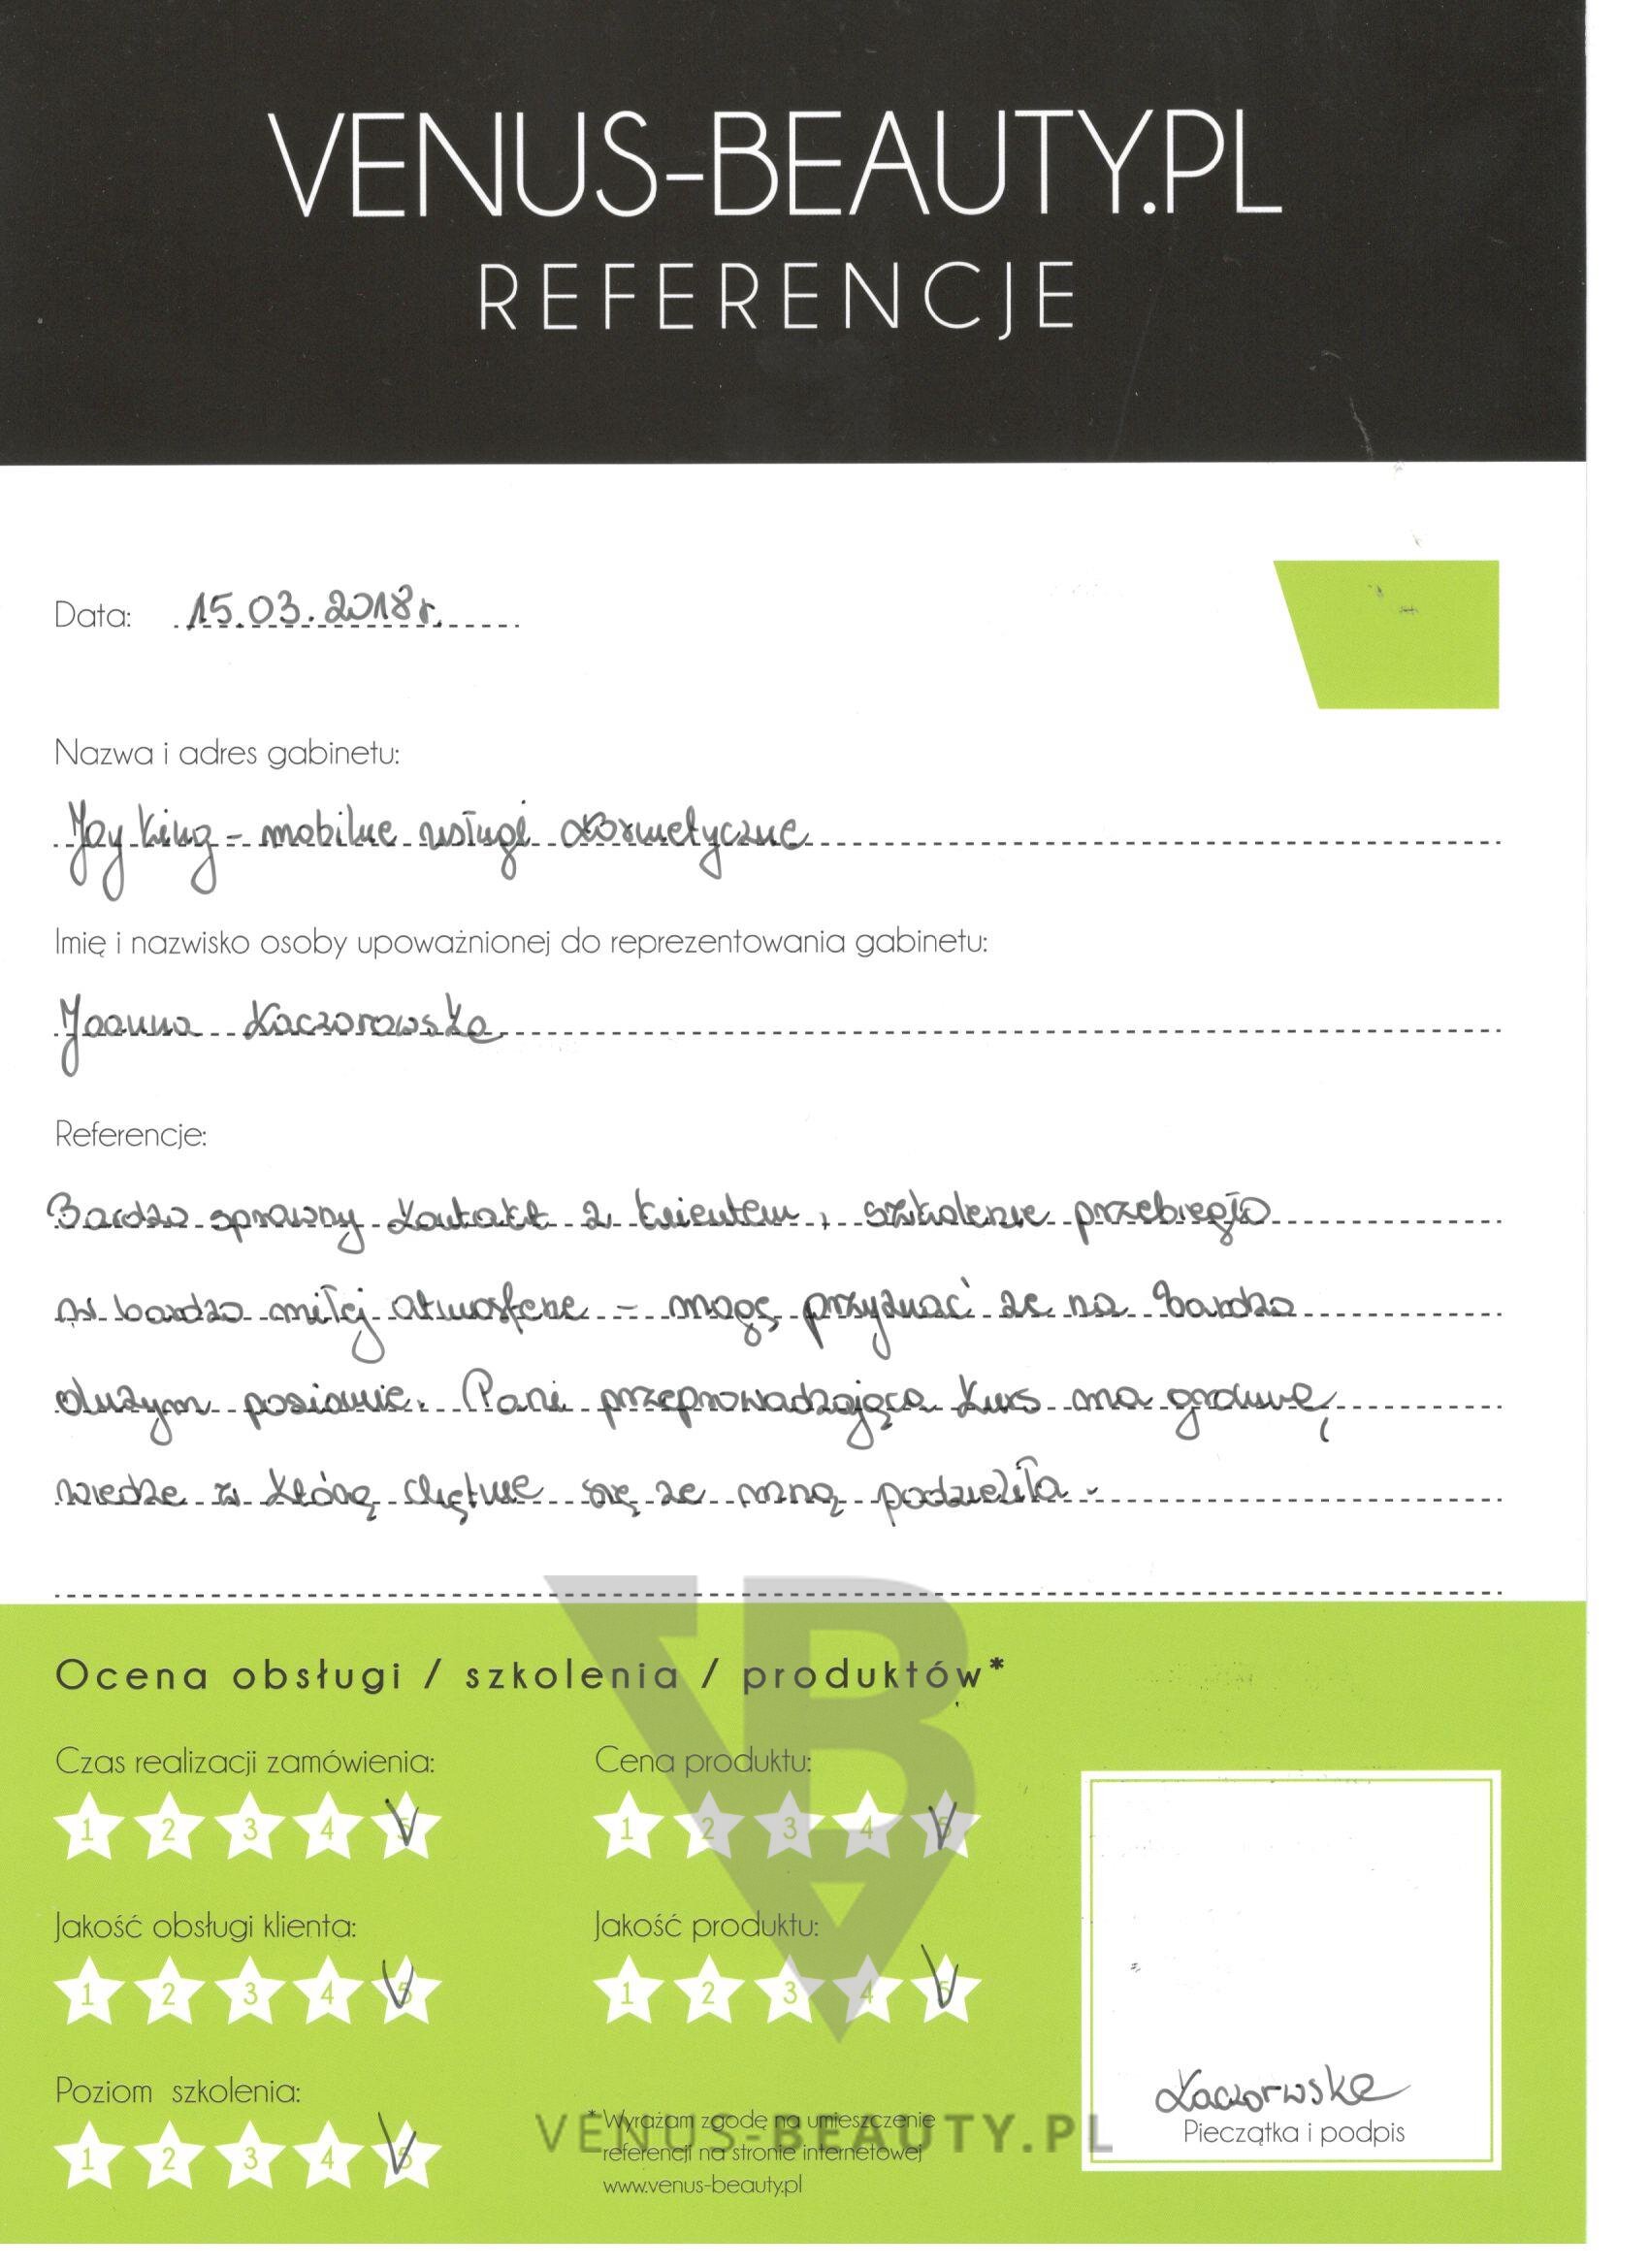 VENUS-BEAUTY.PL
REFERENCJE
Data: 15.03.2018r.
Nazwa i adres gabinetu:
Joy King - mobilne usługi kosmetyczne
Imię i nazwisko osoby upoważnionej do reprezentowania gabinetu:
Joanna Kaczorowska
Referencje:
Bardzo sprawny kontakt z klientem, szkolenie przebiegło
w bardzo miłej atmosferze - mogę przyznać że na bardzo
dużym poziomie. Pani przeprowadzająca kurs ma
wiedze którą chętnie się ze mną podzieliła.
Ocena obsługi / szkolenia / produktów*
Czas realizacji zamówienia:
1 2 3 4 5
Cena produktu:
1 2 3 4 5
Jakość obsługi klienta:
1 2 3 4 5
Jakość produktu:
1 2 3 4 5
Poziom szkolenia:
1 2 3 4 5
* Wyrażam zgodę na umieszczenie
referencji na stronie internetowej
www.venus-beauty.pl
VENUS-BEAUTY.PL
Kaczorwska
Pieczątka i podpis
VBA